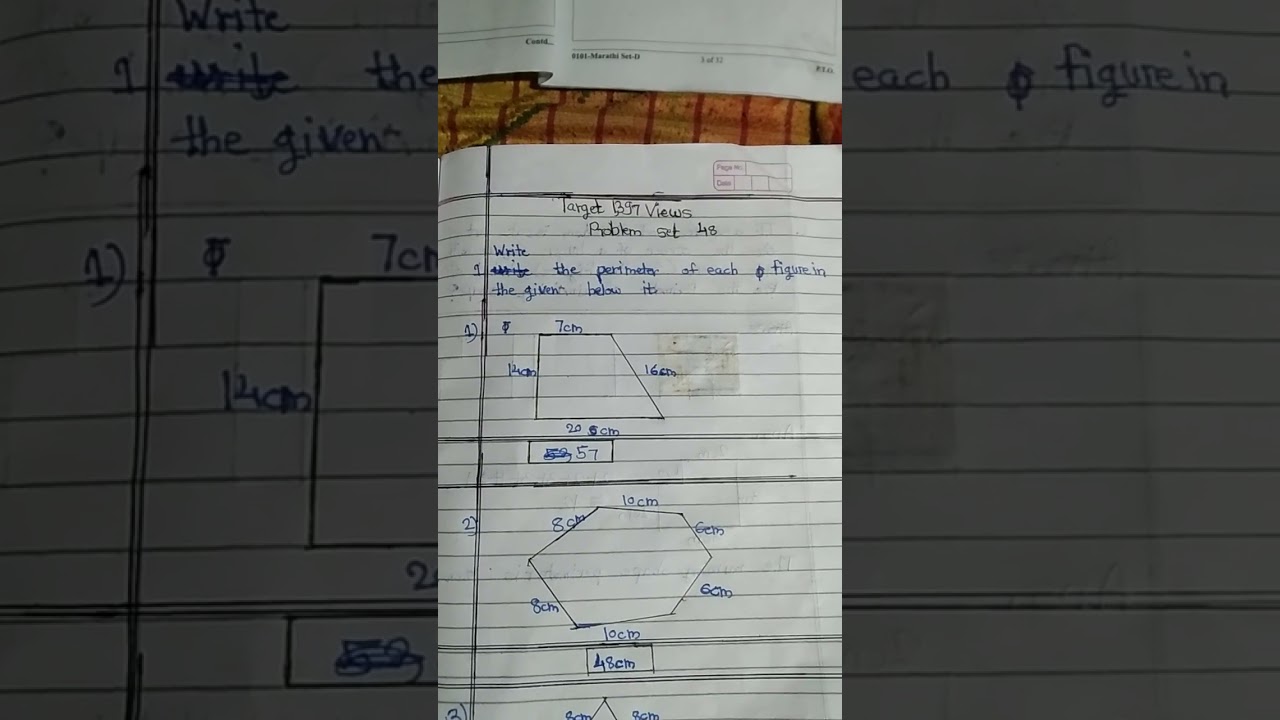 Contd...
0101-Marathi Set-D 3 of 32 P.T.O.
Page No.
Date
Target 1397 Views
Problem set 48
Write
1 Write the perimeter of each figure in
the given below it
1) 7cm
14cm 16cm
20 cm
57
10cm
2) 8cm 6cm
8cm 6cm
10cm
48cm
3) 8cm 8cm